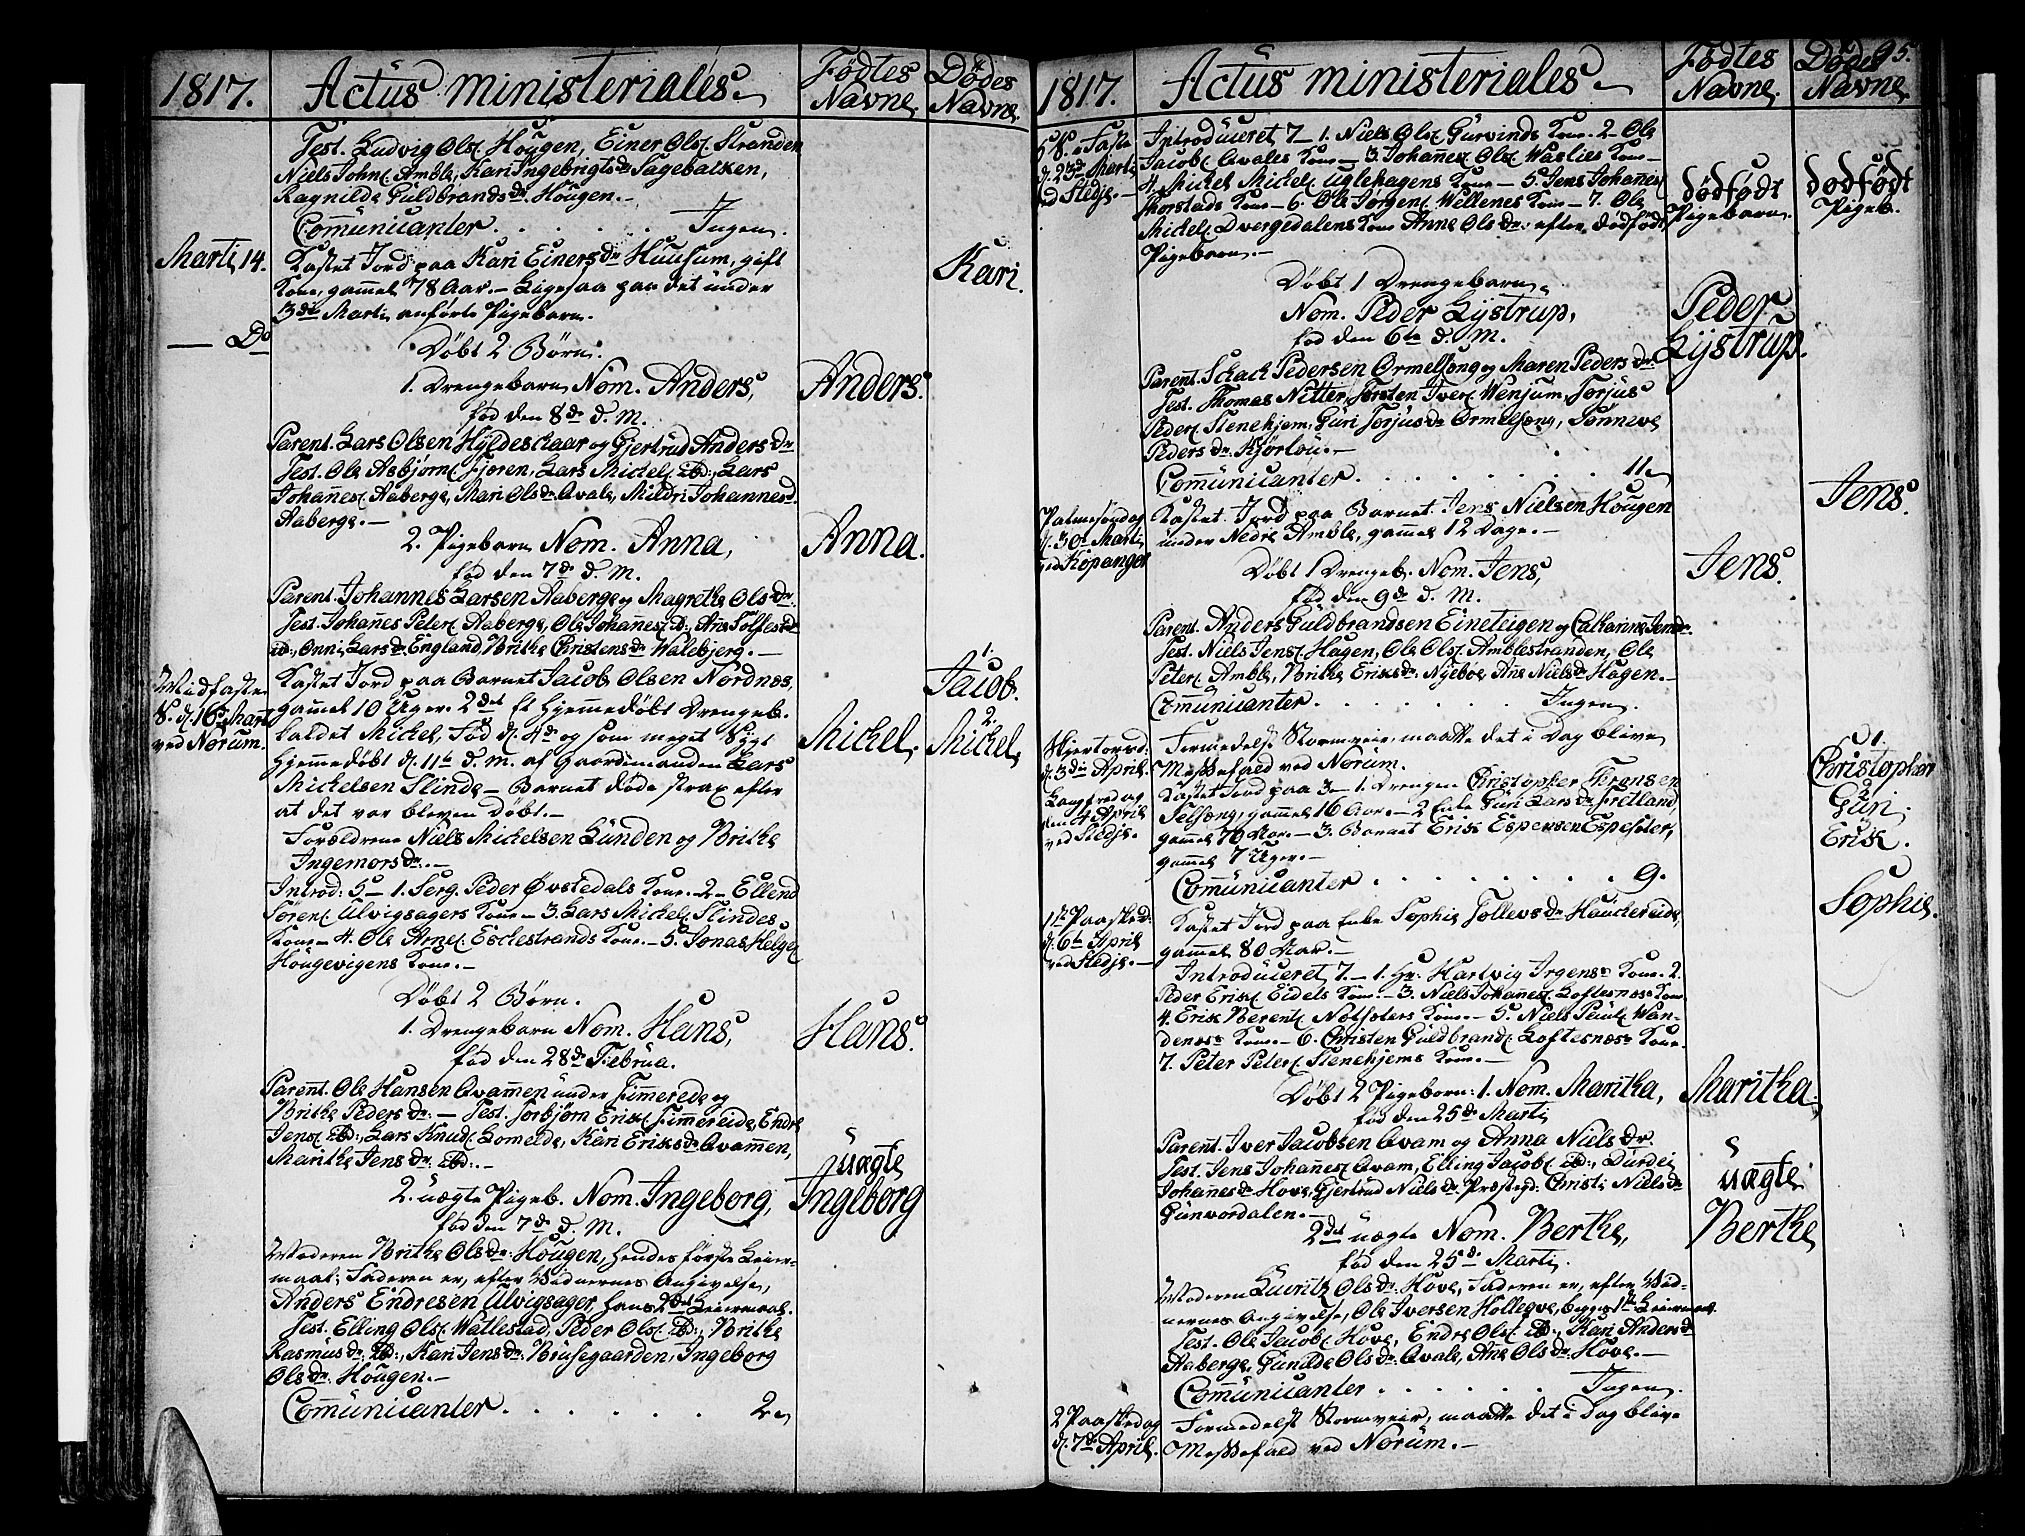 1817.
Actus ministeriales.
Fødtes Navne.
Dødes Navne.
Test. Ludvig Olsf. Hougen, Einer Olsf. Stranden
Niels Johnf. Amble, Kari Ingebrigts dr. Sagebakken,
Ragnilde Guldbrands dr. Hougen.
Communicanter . . . . . . Ingen.
Martii 14.
Kastet Jord paa Kari Einers dr. Huusum, gift
Kone, gammel 78 Aar. - Ligesaa paa det under
3die Martii anførte Pigebarn.
Kari.
— Do
Døbt 2 Børn.
1. Drengebarn Nom. Anders,
Anders.
fød den 8de d. M.
Parent. Lars Olsen Hyldeskaar og Gjertrud Anders dr.
Test. Ole Asbjørnf. Fjøren, Lars Mickelf. ibd:, Lars
Johannesf. Aaberge, Mari Ols dr. Qvale, Mildri Johannes d.
Aaberge. -
2. Pigebarn Nom. Anna,
Anna.
fød den 7de d. M.
Parent. Johannes Larsen Aaberge og Magrethe Ols dr.
Test. Johannes Peterf. Aaberge, Ole Johannesf. ibd:, Ane Tolfes dr.
ibd:, Onni Lars dr. England, Brithe Christens dr. Walebjerg. -
Midfaste
S. d. 16de Martii
ved Norum.
Kastet Jord paa Barnet Jacob Olsen Nordnes,
gammel 10 Uger. 2det Et hjemmedøbt Drengeb.
kaldet Mickel, fød d. 4de og som meget Sygt
hjemmedøbt d. 11te d. M. af gaardmanden Lars
Mickelsen Slinde - Barnet døde strax efter
at det var bleven døbt. -
1. Jacob.
Mickel.
2. Mickel
Forældrene Niels Mickelsen Lunden og Brithe
Ingemors dr. -
Introd: 5 - 1. Serg. Peder Øvstedals Kone. 2 - Ellend
Sørenf. Ulvigsagers Kone - 3. Lars Mickelf. Slindes
Kone - 4. Ole Arnef. Esclestrands Kone. - 5. Jonas Helgef.
Hougevigens Kone. -
Døbt 2 Børn.
1. Drengebarn Nom. Hans,
Hans.
fød den 28de Februa.
Parent. Ole Hansen Qvammen under Fimreide og
Brithe Peders dr: - Test. Torbjørn Erikf. Fimmereide, Endre
Jensf. ibd:, Lars Knudf. Lomelde, Kari Eriks dr. Qvammen,
Marithe Jens dr: ibd: -
2. uægte Pigeb. Nom. Ingeborg,
uægte
Ingeborg
fød den 7de d. M.
Moderen Brithe Ols dr: Hougen, hendes første Leier-
maal; Faderen er, efter Vidnernes Angivelse,
Anders Endresen Ulvigsager, hans 2det Leiermaal.
Test. Elling Olsf. Watlestad, Peder Olsf. ibd:, Brithe
Rasmus dr. ibd:, Kari Jens dr: Brusegaarden, Ingeborg
Ols dr. Hougen. -
Communicanter . . . . . . 2
1817.
Actus ministeriales.
Fødtes Navne.
Dødes Navne.
95.
5te S. i Faste
d. 23de Martii
ved Stedje. -
Introduceret 7 - 1. Niels Olsf. Gurvinds Kone. 2 - Ole
Jacobf. Qvales Kone - 3. Johannesf. Olsf. Waslies Kone -
4. Mickel Mickelf. Uglehagens Kone - 5. Jens Johannesf.
Skorstads Kone - 6. Ole Jørgenf. Wellenes Kone - 7. Ole
Mickelf. Dvergedalens Kone Anne Ols dr: efter dødfødt
Pigebarn. -
dødfødt
Pigebarn.
dødfødt
Pigeb.
Døbt 1 Drengebarn.
Nom. Peder Lystrup,
fød den 6te d. M.
Peder
Lystrup.
Parent. Schack Pedersen Ormelsong og Maren Peders dr.
Test. Thomas Nitter, Torsten Iverf. Wenjum, Torjus
Pederf. Stenehjem, Guri Torjus dr. Ormelsong, Sønneve
Peders dr. Kjørlou. -
Communicanter . . . . . . 11
Palmesøndag
d. 30te Martii
ved Kopanger
Kastet Jord paa Barnet Jens Nielsen Hougen
under Nedre Amble, gammel 12 Dage. -
Jens.
Døbt 1 Drengeb. Nom. Jens,
Jens.
fød den 9de d. M.
Parent. Anders Guldbrandsen Eineteigen og Catharine Jens dr.
Test. Niels Jensf. Hagen, Ole Olsf. Amblestranden, Ole
Peterf. Amble, Brithe Eriks dr: Nybøe, Ane Niels dr. Hagen. -
Communicanter . . . . . . Ingen.
Skjertorsd:
d. 3die April.
Formedelst Stormveir, maatte det i Dag blive
Messefald ved Norum.
Langfredag
den 4 April
ved Stedje.
Kastet Jord paa 3 - 1. Drengen Christopher Thrensen
Selseng, gammel 16 Aar. - 2 Enke Guri Lars dr. Fretland,
gammel 70 Aar. - 3. Barnet Erik Espensen Espeseter,
gammel 7 Uger. -
1.
Christopher
2
Guri
3
Erik.
Communicanter . . . . . . . . 9.
1ste Paasked:
d. 6te April
ved Stedje. -
Kastet Jord paa Enke Sophie Tollevs dr. Haukereide,
gammel 80 Aar. -
Sophie.
Introduceret 7. - 1. Hr: Hartvig Irgens: Kone. 2.
Peder Erikf. Eidels Kone. - 3. Niels Johannesf. Loftesnæs Kone
4. Erik Berentf. Notseters Kone. - 5. Niels Paulf. Wan-
denæs Kone. - 6. Christen Guldbrandf. Loftesnæs Kone.
7. Peter Peterf. Stenehjems Kone. -
Døbt 2 Pigebørn: 1. Nom. Maritha,
Maritha.
fød den 25de Martii
Parent. Iver Jacobsen Qvam og Anna Niels dr.
Test. Jens Johannesf. Qvam, Elling Jacobf. ibd:, Durdei
Johannes dr. Hove, Gjertrud Niels dr. Præstegd: Christi Niels dr.
Gunvordalen. -
2det uægte Nom. Berthe,
uægte
Berthe
fød den 25de Martii.
Moderen Lucritz Ols dr: Hove, Faderen er, efter Vid-
nernes Angivelse, Ole Iversen Hollegve, begges 1ste Leiermaal.
Test. Ole Jacobf. Hove, Endre Olsf. ibd:, Kari Anders dr.
Aaberge, Gunilde Ols dr. Qvale, Ane Ols dr: Hove. -
Communicanter . . . . . Ingen.
2 Paaskedag
d. 7de April.
Formedelst Stormveir, maatte det i Dag blive
Messefald ved Norum. -